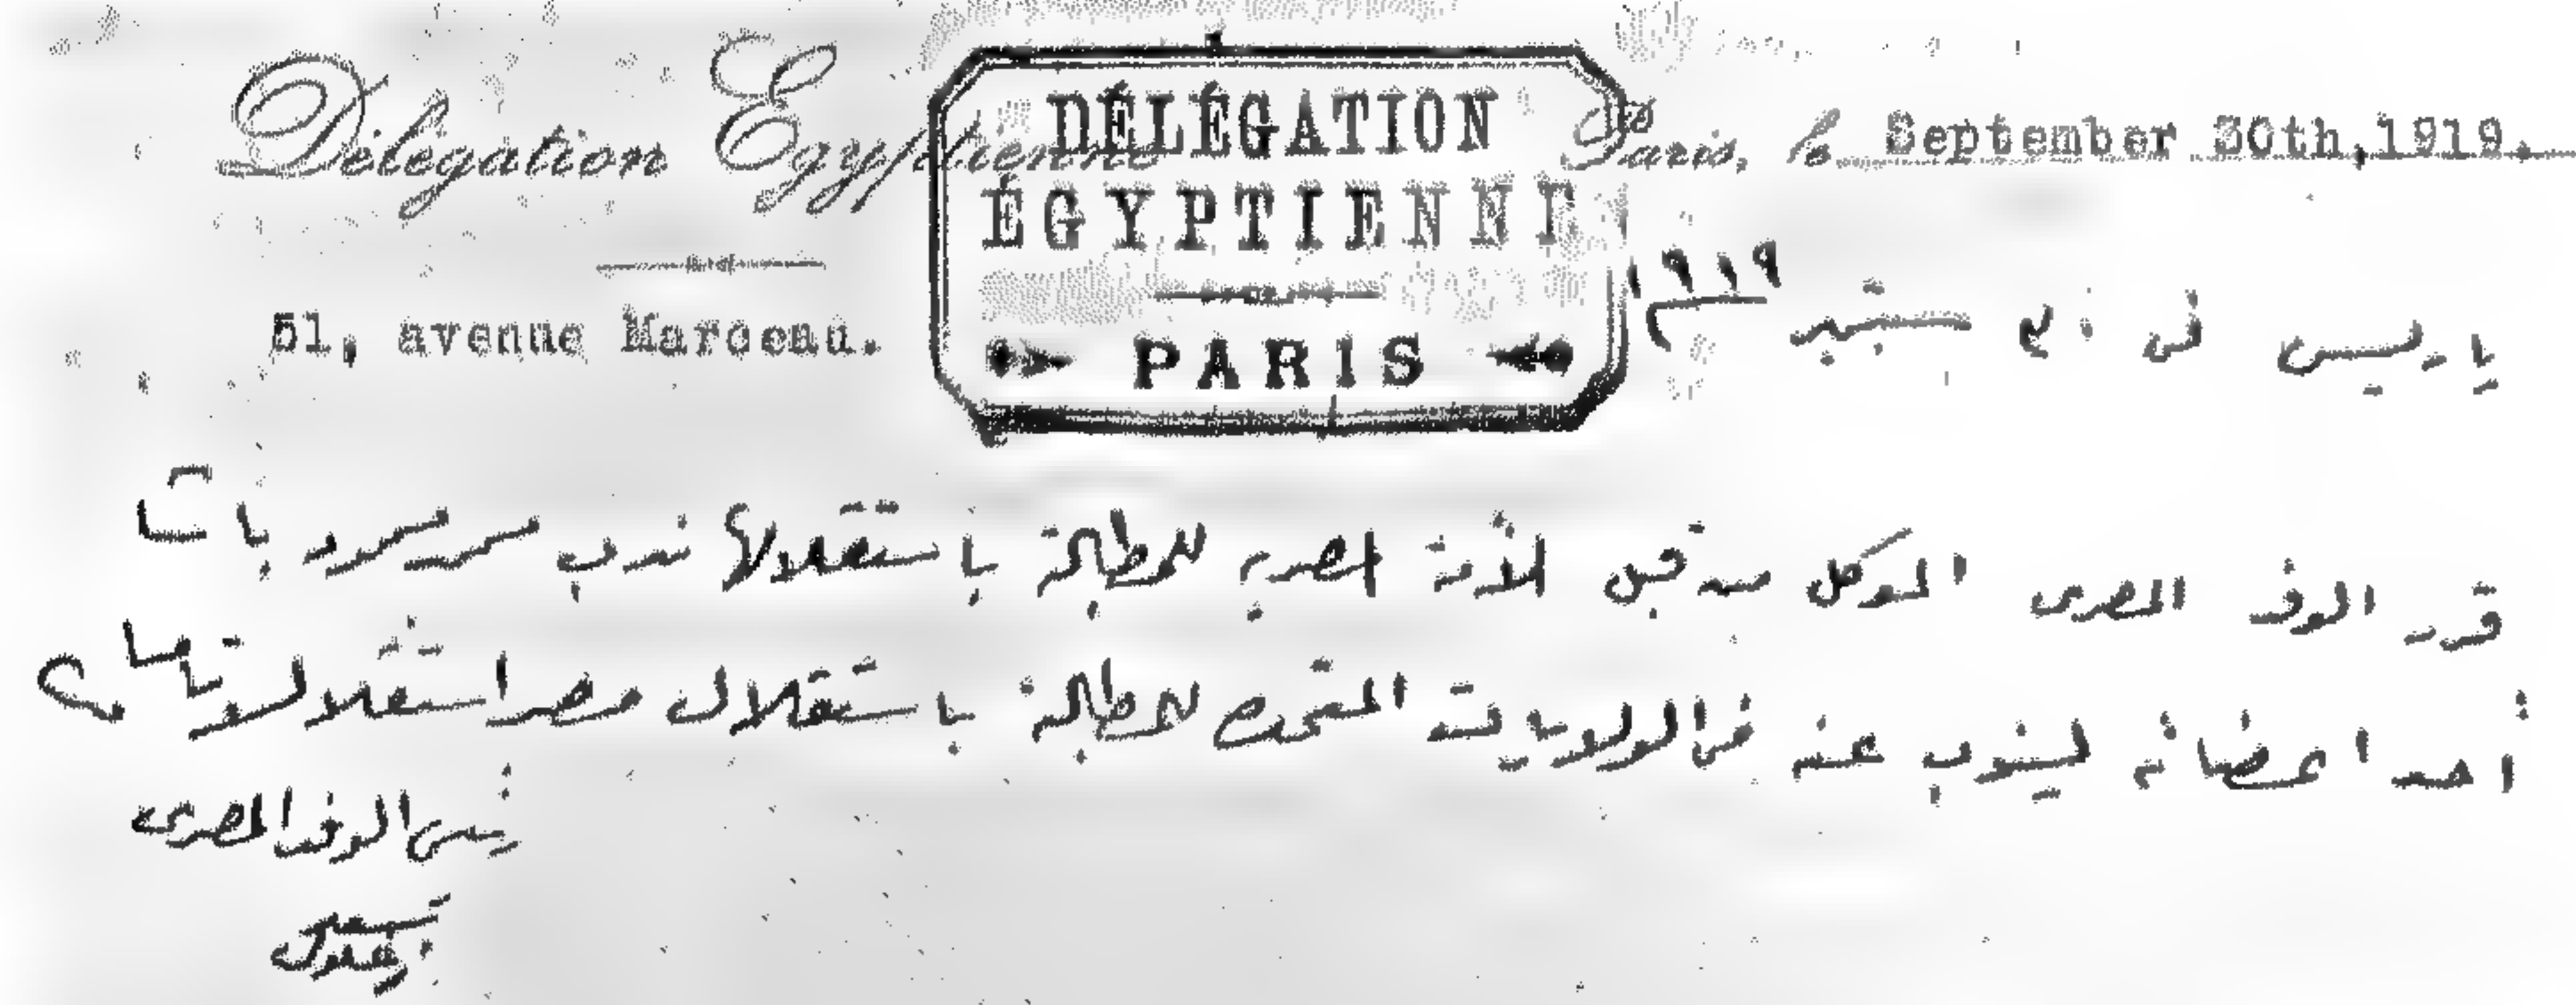 Délégation Egyptienne
DÉLÉGATION
ÉGYPTIENNE
PARIS
Paris, le September 30th, 1919.
51, avenue Marceau.
باريس فى ٣٠ سبتمبر ١٩١٩
قرر الوفد المصرى الموكل من قبل الأمة المصرية للمطالبة باستقلالها ندب محمد محمود باشا
أحد أعضائه لينوب عنه فى الولايات المتحدة للمطالبة باستقلال مصر استقلالا تاما
رئيس الوفد المصرى
سعد زغلول